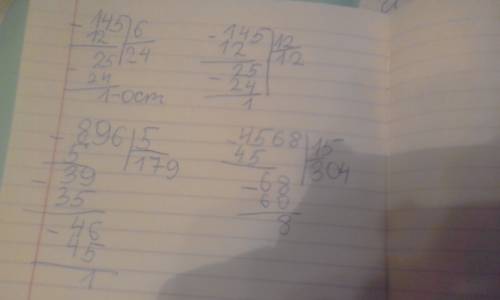 - 145 6
12 24
25
- 24
1-ост
- 145 12
12 12
- 25
24
1
- 896 5
5 179
- 39
35
- 46
45
1
- 4568 15
45 304
- 68
60
8